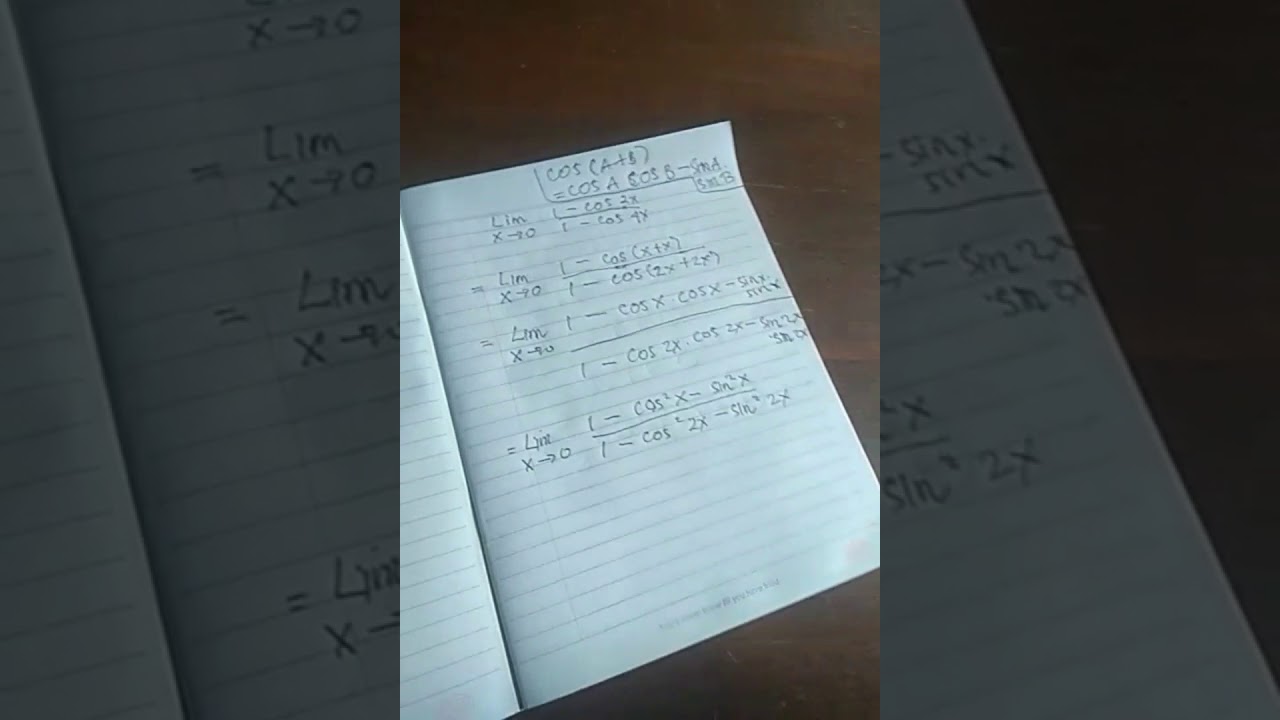 cos(A+B)
= cos A cos B - sin A.
sin B
Lim x→0 1 - cos 2x / 1 - cos 4x
= Lim x→0 1 - cos(x+x) / 1 - cos(2x+2x)
= Lim x→0 1 - cos x . cos x - sin x . sin x / 1 - cos 2x . cos 2x - sin 2x . sin 2x
= Lim x→0 1 - cos² x - sin² x / 1 - cos² 2x - sin² 2x